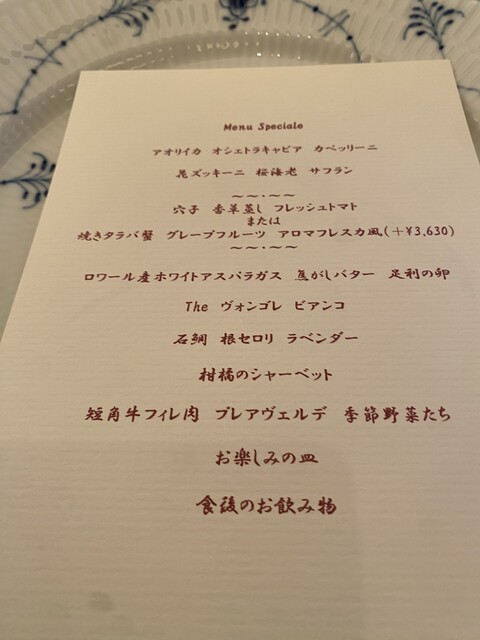 Menu Speciale
アオリイカ オシェトラキャビア カペッリーニ
花ズッキーニ 桜海老 サフラン
～～・～～
穴子 香草蒸し フレッシュトマト
または
焼きタラバ蟹 グレープフルーツ アロマフレスカ風(＋¥3,630)
～～・～～
ロワール産ホワイトアスパラガス 焦がしバター 足利の卵
The ヴォンゴレ ビアンコ
石鯛 根セロリ ラベンダー
柑橘のシャーベット
短角牛フィレ肉 プレアヴェルデ 季節野菜たち
お楽しみの皿
食後のお飲み物